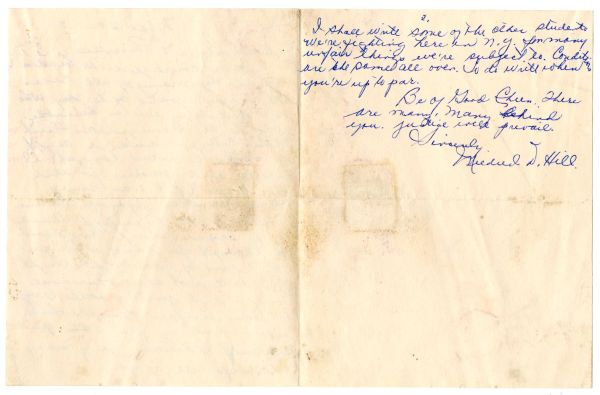 2.
I shall write some of the other students
We're fighting here in N.Y. for many
unfair things we're subject to. Condit
are the same all over. So do write when
you're up to par.
Be of Good Cheer. There
are many, many behind
you. Justice will prevail.
Sincerely
Mildred D. Hill.